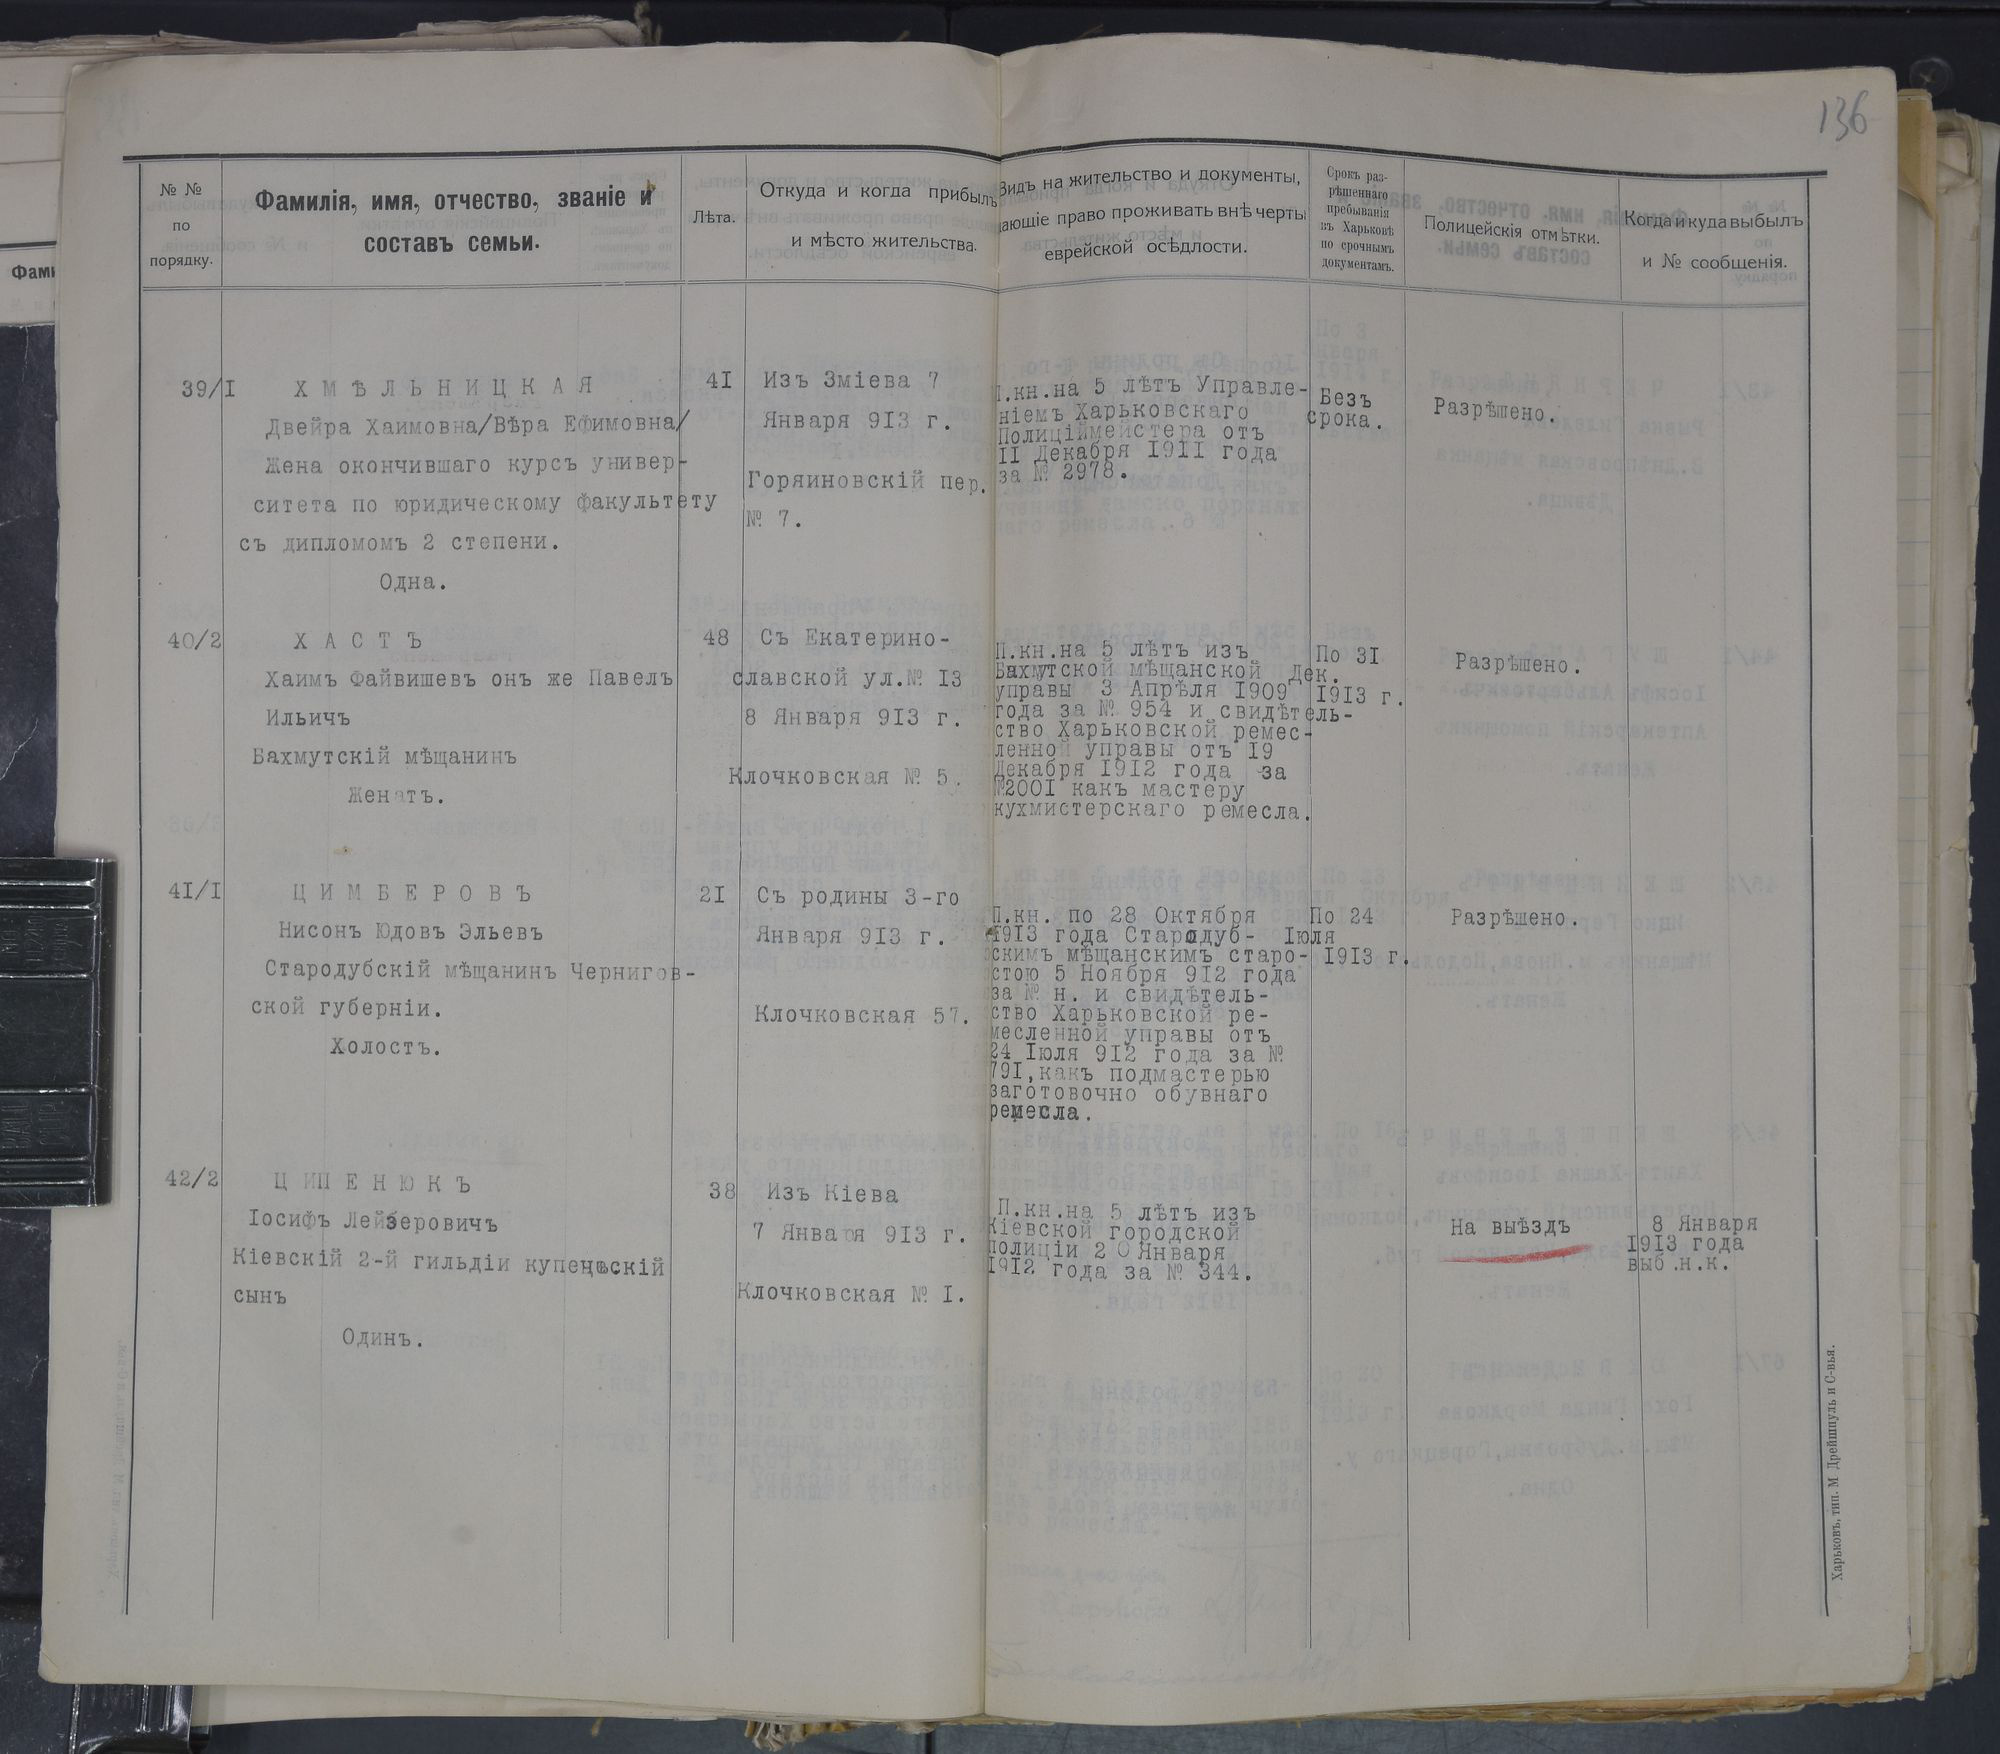 136
№ № по порядку.
Фамилія, имя, отчество, званіе и составъ семьи.
Лѣта.
Откуда и когда прибылъ и мѣсто жительства.
Видъ на жительство и документы, дающіе право проживать внѣ черты еврейской осѣдлости.
Срокъ раз-
рѣшеннаго
пребыванія
въ Харьковѣ
по срочнымъ
документамъ.
Полицейскія отмѣтки.
Когда и куда выбылъ
и № сообщенія.
39/I
ХМѢЛЬНИЦКАЯ
Двейра Хаимовна/Вѣра Ефимовна/
Жена окончившаго курсъ универ-
ситета по юридическому факультету
съ дипломомъ 2 степени.
Одна.
4I
Изъ Зміева 7
Января 9I3 г.
Горяиновскій пер.
№ 7.
П.кн.на 5 лѣтъ Управле-
ніемъ Харьковскаго
Полиціймейстера отъ
II Декабря I9II года
за № 2978.
Безъ
срока.
Разрѣшено.
40/2
ХАСТЪ
Хаимъ Файвишевъ онъ же Павелъ
Ильичъ
Бахмутскій мѣщанинъ
Женатъ.
48
Съ Екатерино-
славской ул.№ I3
8 Января 9I3 г.
Клочковская № 5.
П.кн.на 5 лѣтъ изъ
Бахмутской мѣщанской
управы 3 Апрѣля I909
года за № 954 и свидѣтель-
ство Харьковской ремес-
ленной управы отъ I9
Декабря I9I2 года за
№200I какъ мастеру
кухмистерскаго ремесла.
По 3I
Дек.
I9I3 г.
Разрѣшено.
4I/I
ЦИМБЕРОВЪ
Нисонъ Юдовъ Эльевъ
Стародубскій мѣщанинъ Чернигов-
ской губерніи.
Холостъ.
2I
Съ родины 3-го
Января 9I3 г.
Клочковская 57.
П.кн. по 28 Октября
I9I3 года Стародуб-
скимъ мѣщанскимъ старо-
стою 5 Ноября 9I2 года
за № н. и свидѣтель-
ство Харьковской ре-
месленной управы отъ
24 Іюля 9I2 года за №
79I,какъ подмастерью
заготовочно обувнаго
ремесла.
По 24
Іюля
I9I3 г.
Разрѣшено.
42/2
ЦИПЕНЮКЪ
Іосифъ Лейзеровичъ
Кіевскій 2-й гильдіи купеческій
сынъ
Одинъ.
38
Изъ Кіева
7 Января 9I3 г.
Клочковская № I.
П.кн.на 5 лѣтъ изъ
Кіевской городской
полиціи 20 Января
I9I2 года за № 344.
На выѣздъ
8 Января
I9I3 года
выб.н.к.
Харьковъ, тип. М Дрейшпуль и С-вья.